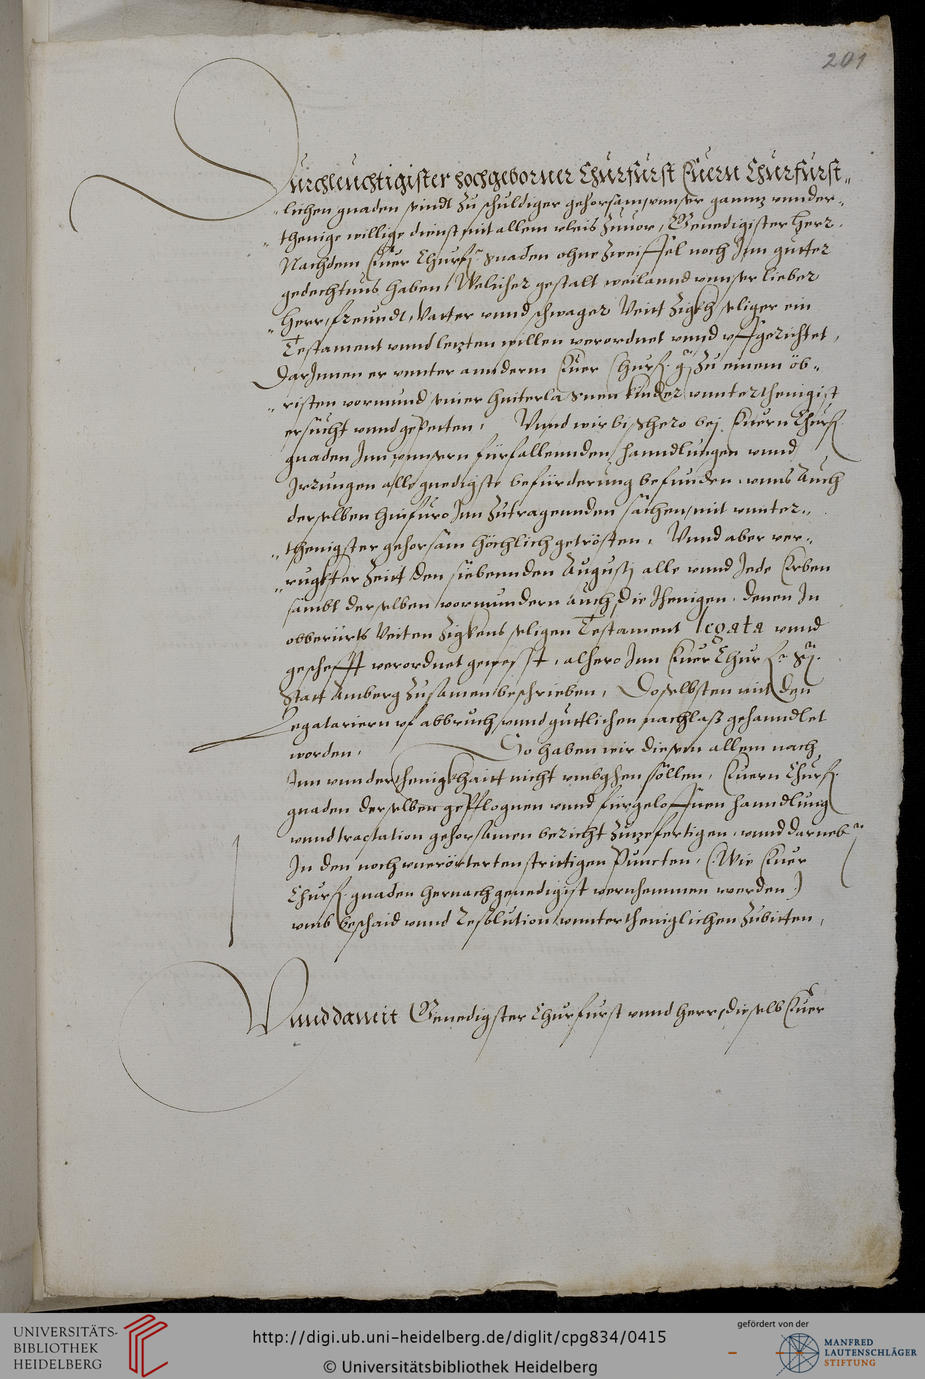 201
Durchleuchtigister hochgeborner Churfurst Euern Churfurst„
„lichen gnaden seindt zu schuldiger gehorsam unnser gannz vnder„
„thenige willige dienst mit allem vleis zuuor, Genedigister Herr.
Nachdem Euer Churf: gnaden ohne Zweiffel noch Inn gutter
gedechtnus haben, Welicher gestalt weilannd vnnser lieber
„Herr, freundt, Vatter vnnd schwager Veitt Zigkh seliger ein
Testament vnnd letzten willen verordnet vnnd vffgerichtet,
DarInnen er vnnter annderm Euer Churf. g: zu einem öb„
„risten vormund seiner hinterlasnen kinder vnnterthenigist
ersucht vnnd gepetten, Vnnd wir bißhero bej Euern Churf.
gnaden Inn vnnsern fürfallennden hanndlungen vnnd
Irrungen alle gnedigste befürderung befunden, vnns Auch
derselben hinfuro Inn zutragennden sachen, mit vnnter„
„thenigster gehorsam höchlich getrösten, Vnnd aber ver„
„rugkter Zeitt den siebennden Augustj alle vnnd Jede Erben
sambt derselben vormundern auch die Jhenigen, denen In
obberürts Veiten Zigkens seligen Testament legata vnnd
geschefft verordnet gewesst, alhero Inn Euer Churf. g:
Statt Amberg zusamen beschrieben, Doselbsten mit den
Legatariern vf abbruch vnnd güttlichen nachlaß gehanndlet
worden, So haben wir diesem allem nach
Inn vnnderthenigkhaitt nicht vmbgehen söllen, Euern Churf.
gnaden derselben gepflognen vnnd fürgeloffnen hanndlung
vnnd tractation gehorsamen bericht zuzefertigen, vnnd darneben
In den noch vnerörterten strittigen Puncten, (Wie Euer
Churf. gnaden hernach genedigist vernhemmen werden)
vmb beschaid vnnd Resolution vnnterthenigclichen zubitten,
Vnnd damit Genedigster Churfurst vnnd herr, dieselb Euer
UNIVERSITÄTS-
BIBLIOTHEK
HEIDELBERG
http://digi.ub.uni-heidelberg.de/diglit/cpg834/0415
© Universitätsbibliothek Heidelberg
gefördert von der
MANFRED
LAUTENSCHLÄGER
STIFTUNG